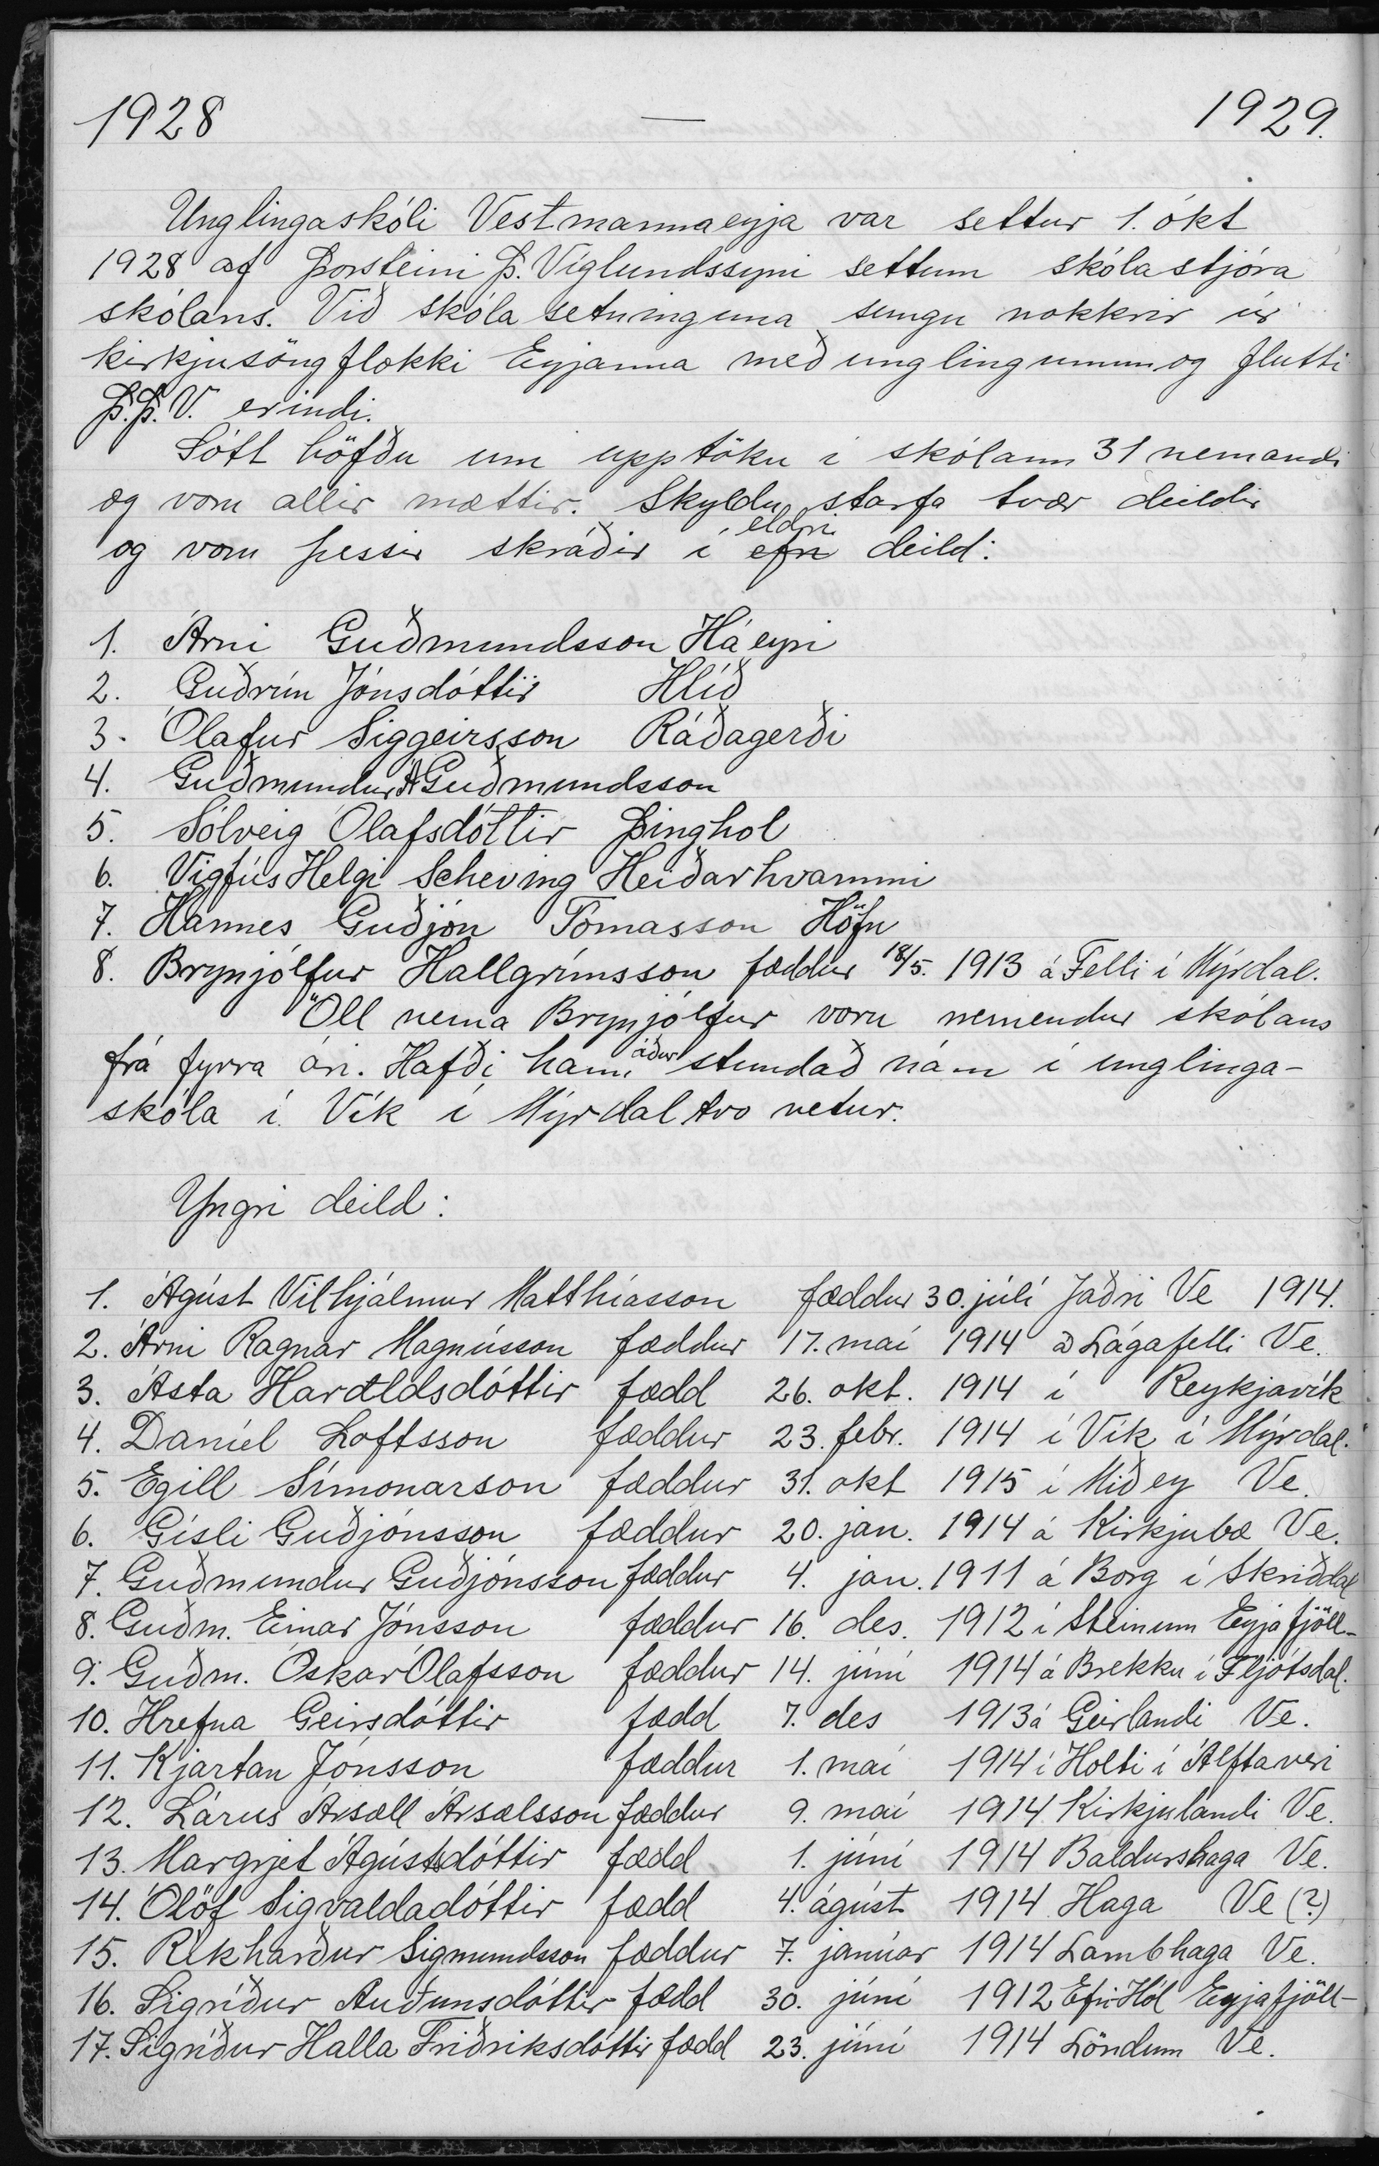 1928 — 1929.
Unglingaskóli Vestmannaeyja var settur 1. okt
1928 af Þorsteini Þ. Víglundssyni settum skólastjóra
skólans. Við skólasetninguna sungu nokkrir úr
kirkjusöngflokki Eyjanna með unglingunum og flutti
Þ.Þ.V. erindi.
Sótt höfðu um upptöku í skólann 31 nemandi
og voru allir mættir. Skyldu starfa tvær deildir
og voru þessir skráðir í efri eldri deild:
1. Árni Guðmundsson Háeyri
2. Guðrún Jónsdóttir Hlíð
3. Ólafur Siggeirsson Ráðagerði
4. Guðmundur A Guðmundsson
5. Sólveig Ólafsdóttir Þinghol
6. Vigfús Helgi Scheving Heiðarhvammi
7. Hannes Guðjón Tómasson Höfn
8. Brynjólfur Hallgrímsson fæddur 18/5. 1913 á Felli í Mýrdal.
Öll nema Brynjólfur voru nemendur skólans
frá fyrra ári. Hafði hann áður stundað nám í unglinga-
skóla í Vík í Mýrdal tvo vetur.
Yngri deild:
1. Ágúst Vilhjálmur Matthíasson fæddur 30. júlí Jaðri Ve 1914.
2. Árni Ragnar Magnússon fæddur 17. maí 1914 á Lágafelli Ve.
3. Ásta Haraldsdóttir fædd 26. okt. 1914 í Reykjavík
4. Daníel Loftsson fæddur 23. febr. 1914 í Vík í Mýrdal.
5. Egill Símonarson fæddur 31. okt 1915 í Miðey Ve.
6. Gísli Guðjónsson fæddur 20. jan. 1914 á Kirkjubæ Ve.
7. Guðmundur Guðjónsson fæddur 4. jan. 1911 á Borg í Skriðdal
8. Guðm. Einar Jónsson fæddur 16. des. 1912 í Steinum Eyjafjöll-
9. Guðm. Óskar Ólafsson fæddur 14. júní 1914 á Brekku í Fljótsdal.
10. Hrefna Geirsdóttir fædd 7. des 1913 á Geirlandi Ve.
11. Kjartan Jónsson fæddur 1. maí 1914 í Holti í Álftaveri
12. Lárus Ársæll Ársælsson fæddur 9. maí 1914 Kirkjulandi Ve.
13. Margrjet Ágústsdóttir fædd 1. júní 1914 Baldurshaga Ve.
14. Ólöf Sigvaldadóttir fædd 4. ágúst 1914 Haga Ve (?)
15. Ríkharður Sigmundsson fæddur 7. janúar 1914 Lambhaga Ve.
16. Sigríður Auðunsdóttir fædd 30. júní 1912 Efri-Hól Eyjafjöll-
17. Sigríður Halla Friðriksdóttir fædd 23. júní 1914 Löndum Ve.